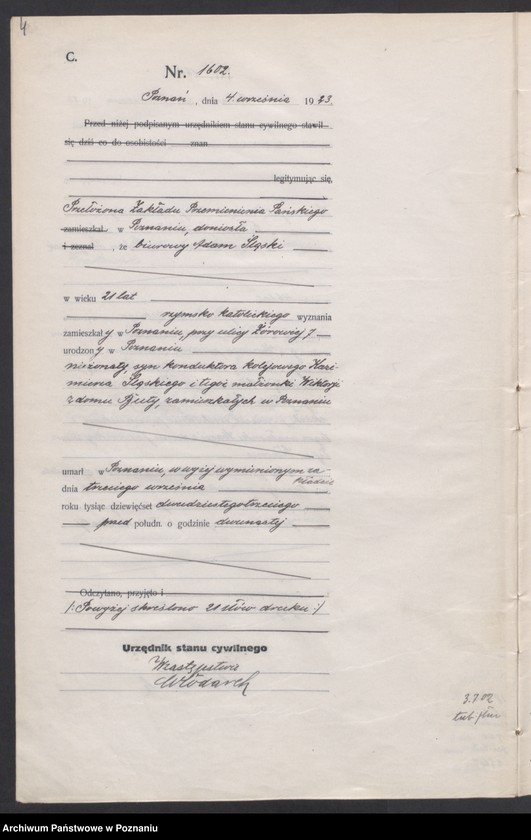 4
C.
Nr. 1602.
Poznań, dnia 4. września 1923.
Przed niżej podpisanym urzędnikiem stanu cywilnego stawił
się dziś co do osobistości znan
legitymując się,
Przełożona Zakładu Przemienienia Pańskiego
zamieszkał w Poznaniu, doniosła
i zeznał, że biurowy Adam Śląski
w wieku 21 lat
rzymsko katolickiego wyznania
zamieszkały w Poznaniu, przy ulicy Żórawiej 7
urodzony w Poznaniu
nieżonaty, syn konduktora kolejowego Kazi-
mierza Śląskiego i tegoż małżonki Wiktorji
z domu zamieszkałych w Poznaniu
umarł w Poznaniu, w wyżej wymienionym za-
kładzie
dnia trzeciego września
roku tysiąc dziewięćset dwudziestegotrzeciego
przed połudn. o godzinie dwunastej
Odczytano, przyjęto i
/: Powyżej skreślono 21 słów druku :/
Urzędnik stanu cywilnego
W zastępstwie
Włodarek
3.7.02
Archiwum Państwowe w Poznaniu